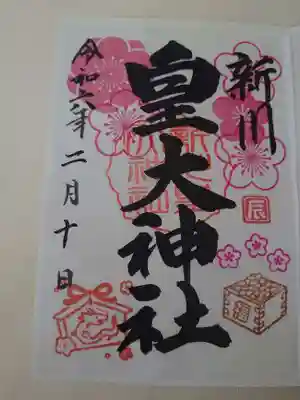 新川
皇大神社
令和六年二月十日
辰
福